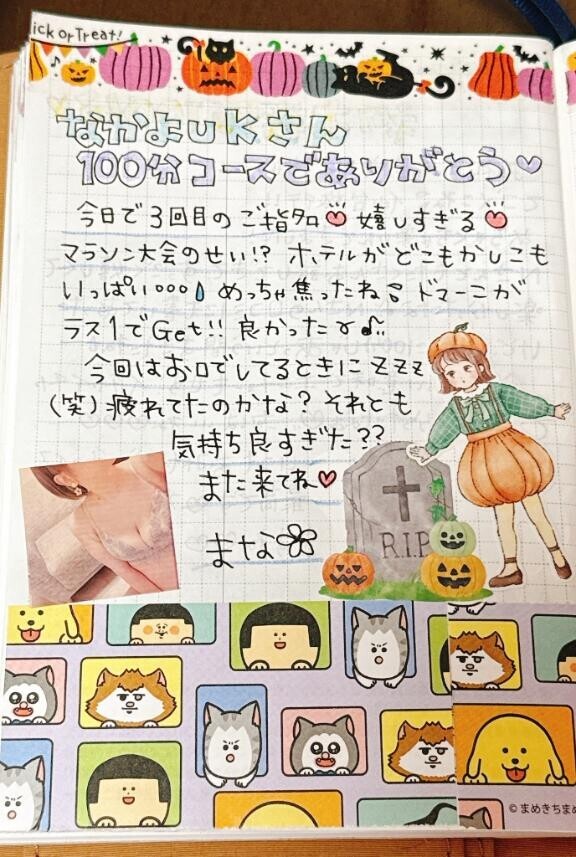 ick or Treat!
なかよUKさん
100分コースでありがとう♡
今日で3回目のご指名 嬉しすぎる
マラソン大会のせい!? ホテルがどこもかしこも
いっぱい。。。 めっちゃ焦ったね ドマーニが
ラス1でGet!! 良かったァ♪
今回はお口でしてるときにZZZ
(笑) 疲れてたのかな? それとも
気持ち良すぎた??
また来てね♥
まな
R.I.P
© まめきちまめ